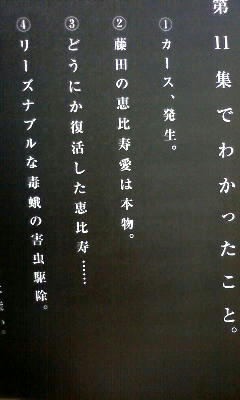 第11集でわかったこと。
①カース、発生。
②藤田の恵比寿愛は本物。
③どうにか復活した恵比寿……
④リーズナブルな毒蛾の害虫駆除。